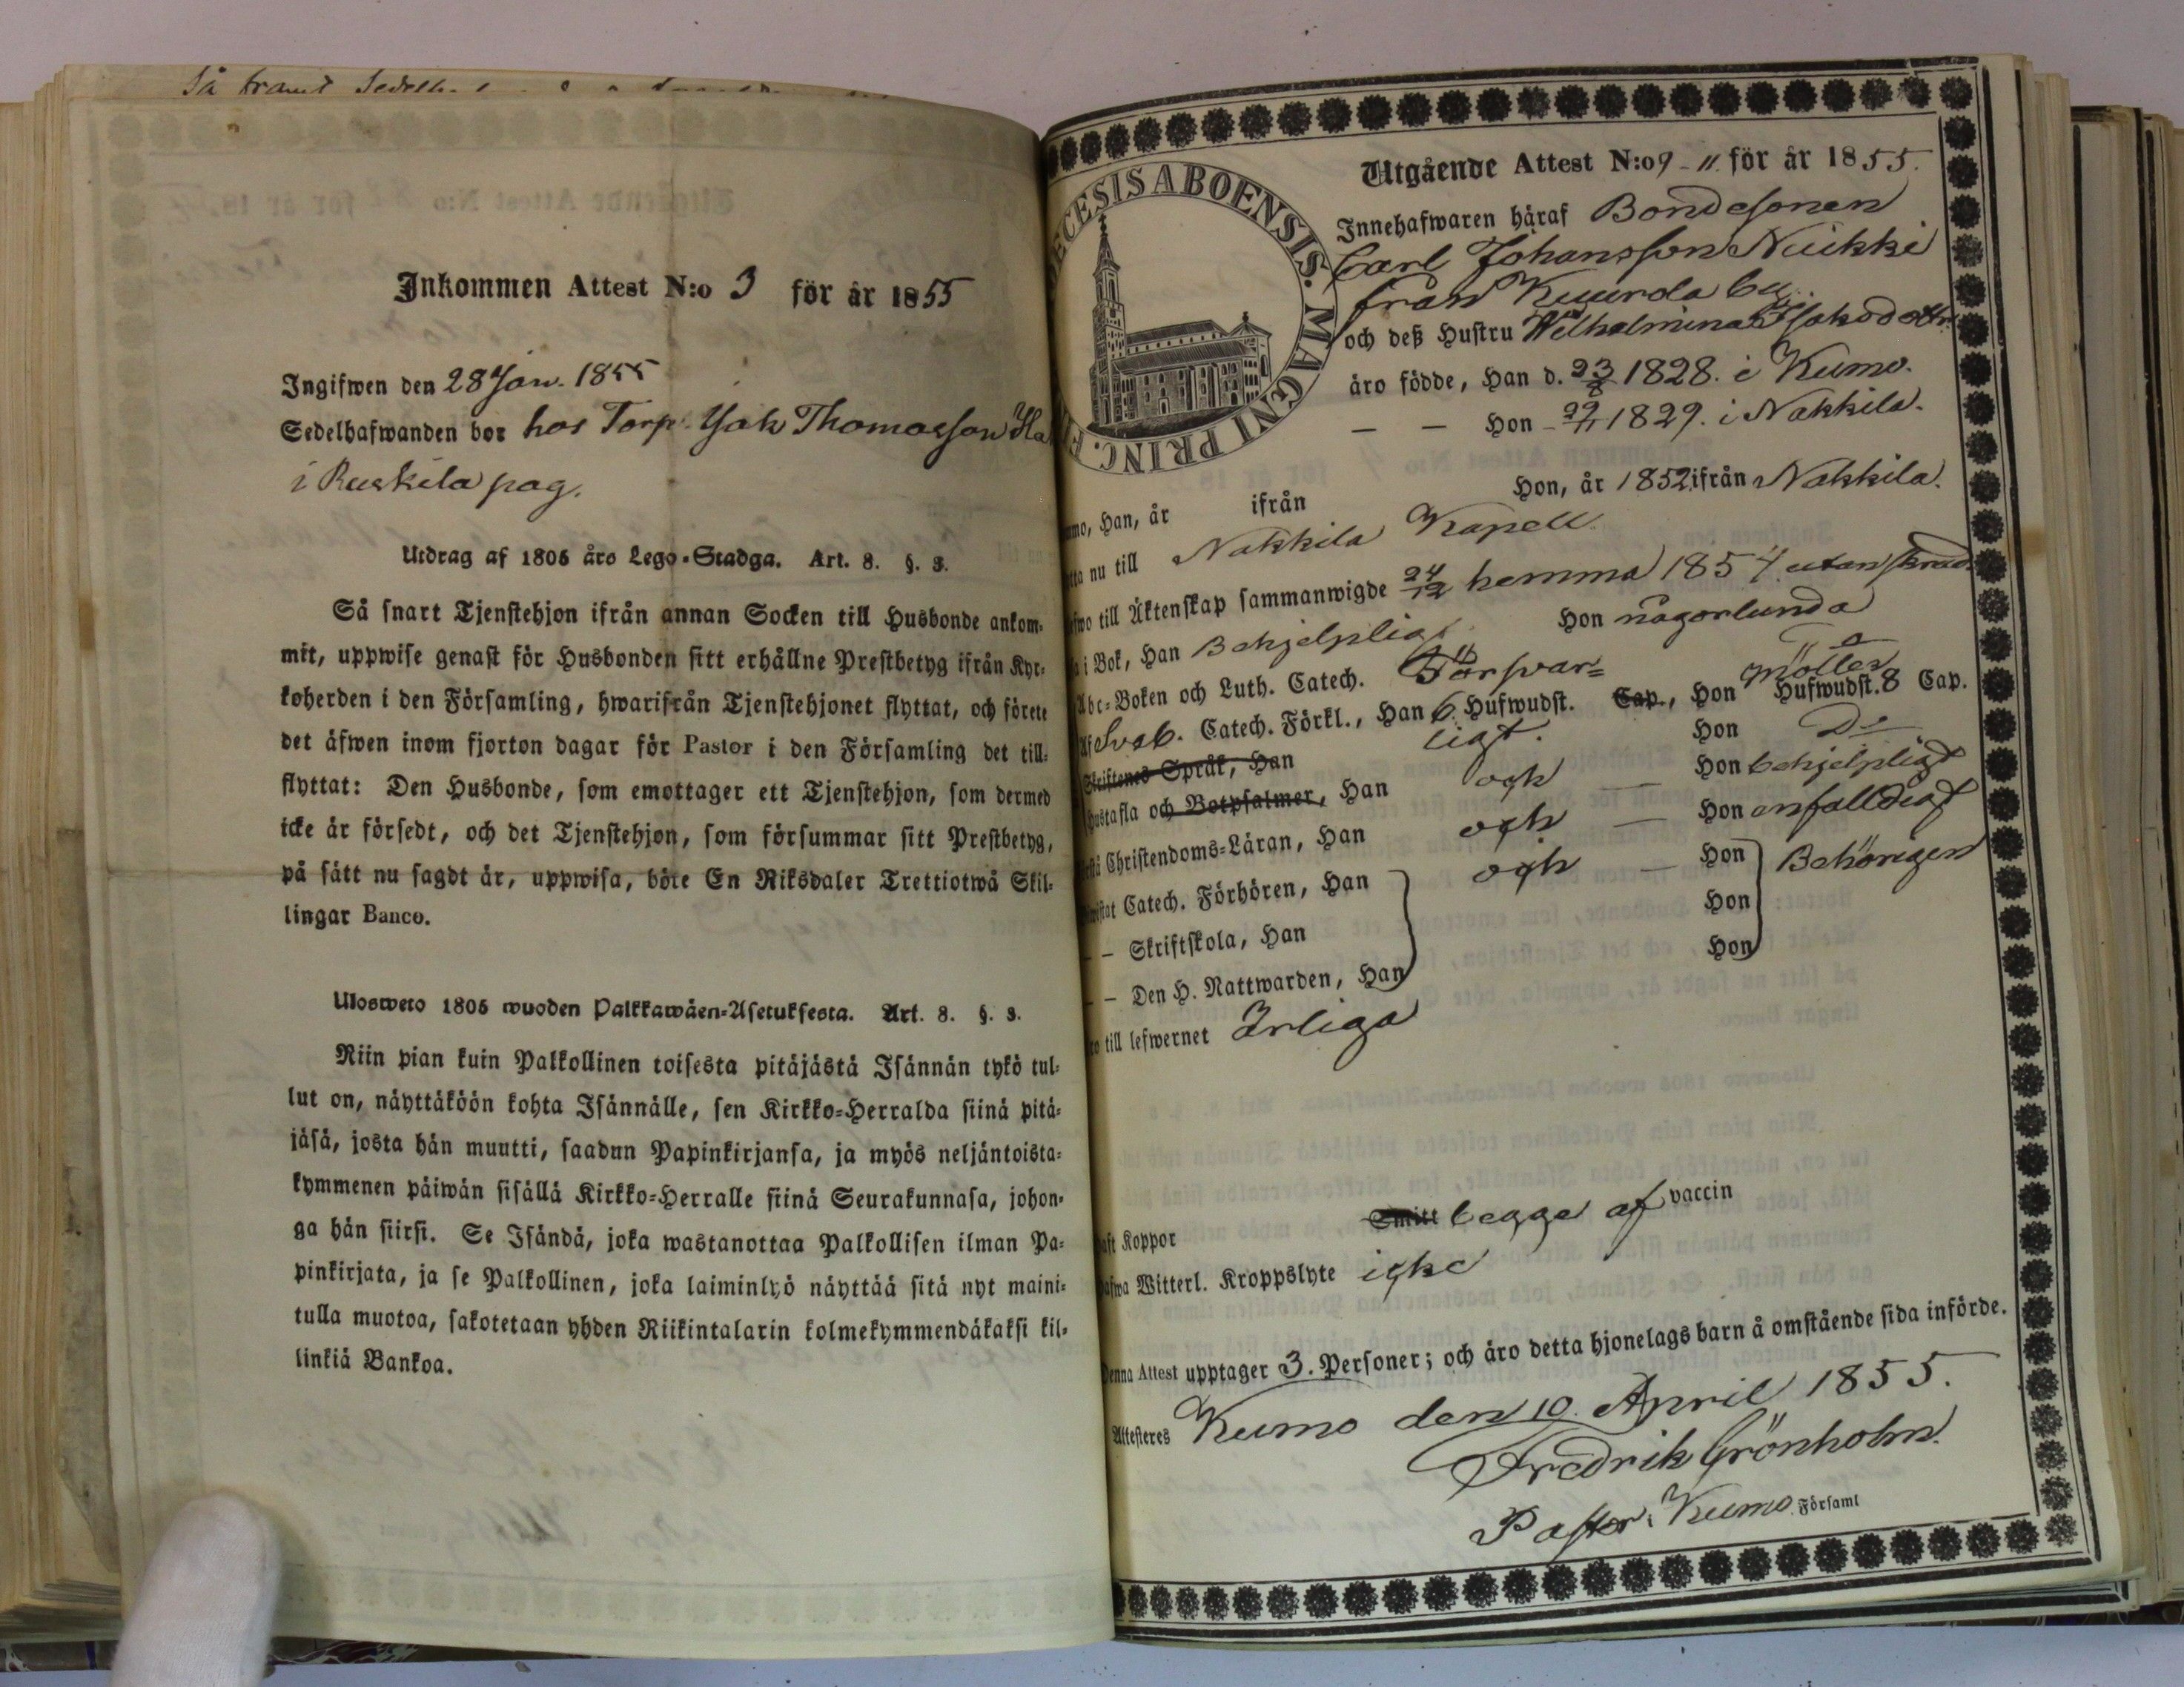 Så framt Sedelh.
Inkommen Attest N:o 3 för år 1855
Ingifwen den 28 Jan. 1855
Sedelhafwanden bor hos Torp. Isak Thomasson
i Ruskila pag.
Utdrag af 1805 års Lego-Stadga. Art. 8. §. 3.
Så snart Tjenstehjon ifrån annan Socken till Husbonde ankom-
mit, uppwise genast för Husbonden sitt erhållne Prestbetyg ifrån Kyr-
koherden i den Församling, hwarifrån Tjenstehjonet flyttat, och förete
det äfwen inom fjorton dagar för Pastor i den Församling det till-
flyttat: Den Husbonde, som emottager ett Tjenstehjon, som dermed
icke är försedt, och det Tjenstehjon, som försummar sitt Prestbetyg,
på sätt nu sagdt är, uppwisa, böte En Riksdaler Trettiotwå Skil-
lingar Banco.
Ulosweto 1805 wuoden Palkkawäen-Asetuksesta. Art. 8. §. 3.
Niin pian kuin Palkollinen toisesta pitäjästä Isännän tykö tul-
lut on, näyttäköön kohta Isännälle, sen Kirkko-Herralda siinä pitä-
jäsä, josta hän muutti, saadun Papinkirjansa, ja myös neljäntoista-
kymmenen päiwän sisällä Kirkko-Herralle siinä Seurakunnasa, johon-
ga hän siirsi. Se Isändä, joka wastanottaa Palkollisen ilman Pa-
pinkirjata, ja se Palkollinen, joka laiminlyö näyttää sitä nyt maini-
tulla muotoa, sakotetaan yhden Riikintalarin kolmekymmendäkaksi kil-
linkiä Bankoa.
ECESIS ABOENSIS. MAGNI PRINC. F
Utgående Attest N:o 9-11. för år 1855.
Innehafwaren häraf Bondesonen
Carl Johansson Nuikki
från Kuurola by
och deß Hustru Wilhelmina Isaksdotter
äro födde, Han d. 23/8 1828. i Kumo.
— — Hon - 29/11 1829. i Nakkila.
mo, Han, år ifrån Hon, år 1852 ifrån Nakkila.
tta nu till Nakkila Kapell
fwo till Äktenskap sammanwigde 24/12 hemma 1854 utan
i Bok, Han Behjelpligt Hon någorlunda
Abc-Boken och Luth. Catech. Försvar=
Af Sveb. Catech. Förkl., Han 6 Hufwudst. Cap., Hon Hufwudst. 8 Cap.
Skriftenes Språk, Han ligt. Hon Do
Hustafla och Botpsalmer, Han och — Hon behjelpligt
Christendoms-Läran, Han och — Hon enfalldigt
Catech. Förhören, Han och — Hon Behörigen
— Skriftskola, Han Hon
— — Den H. Nattwarden, Han Hon
till lefwernet Ärliga
aft Koppor Smitt begge af vaccin
afwa Witterl. Kroppslyte icke
Denna Attest upptager 3. Personer; och äro detta hjonelags barn å omstående sida införde.
Attesteres Kumo den 10. April 1855.
Fredrik Grönholm.
Pastor i Kumo Församl